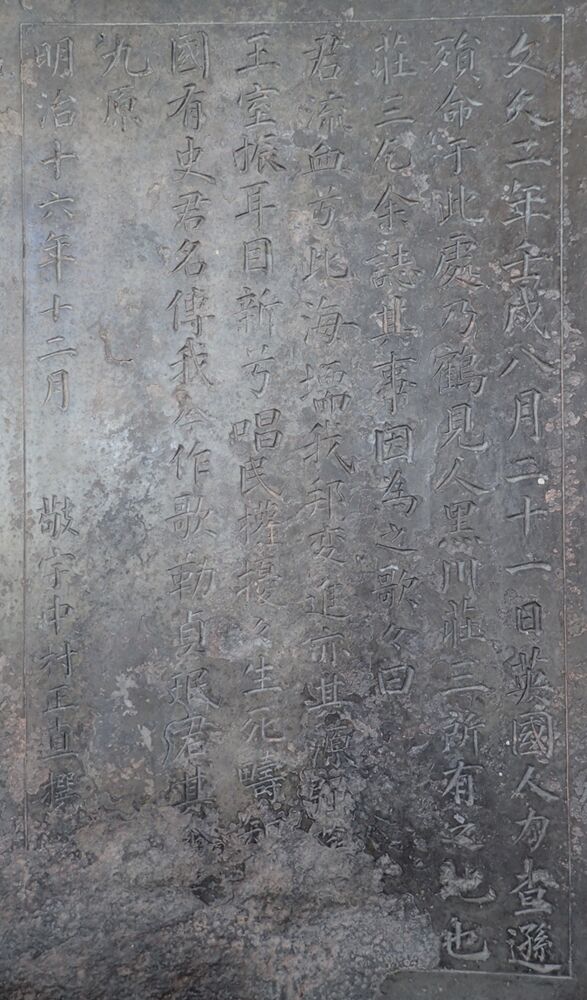 文久二年壬戌八月二十一日英國人力査遜
殞命于此處乃鶴見人黒川荘三所有之地也
荘三乞余誌其事因為之歌々曰
君流血兮此海壖我邦変進亦其源
王室振耳目新兮唱民權擾々生死疇知
國有史君名傳我今作歌勒貞珉君其
九原
明治十六年十二月 敬宇中村正直撰